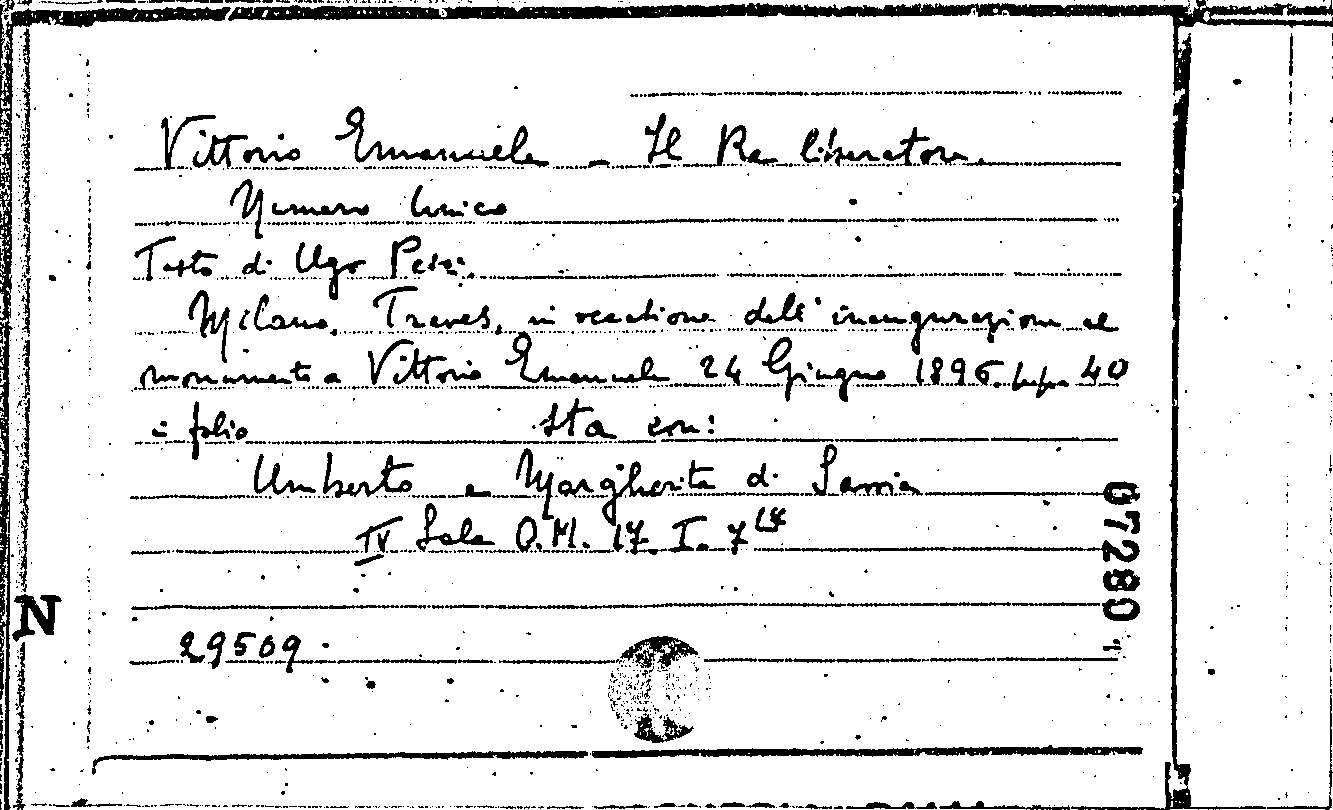 Vittorio Emanuele - Il Re liberatore.
Numero Unico
Testo di Ugo Pesci.
Milano, Treves, in occasione dell' inaugurazione al
monumento a Vittorio Emanuele 24 Giugno 1896. 40
in folio sta con:
Umberto e Margherita di Savoia
IV Sala O.M. 17. I. 7
29509.
07280
N